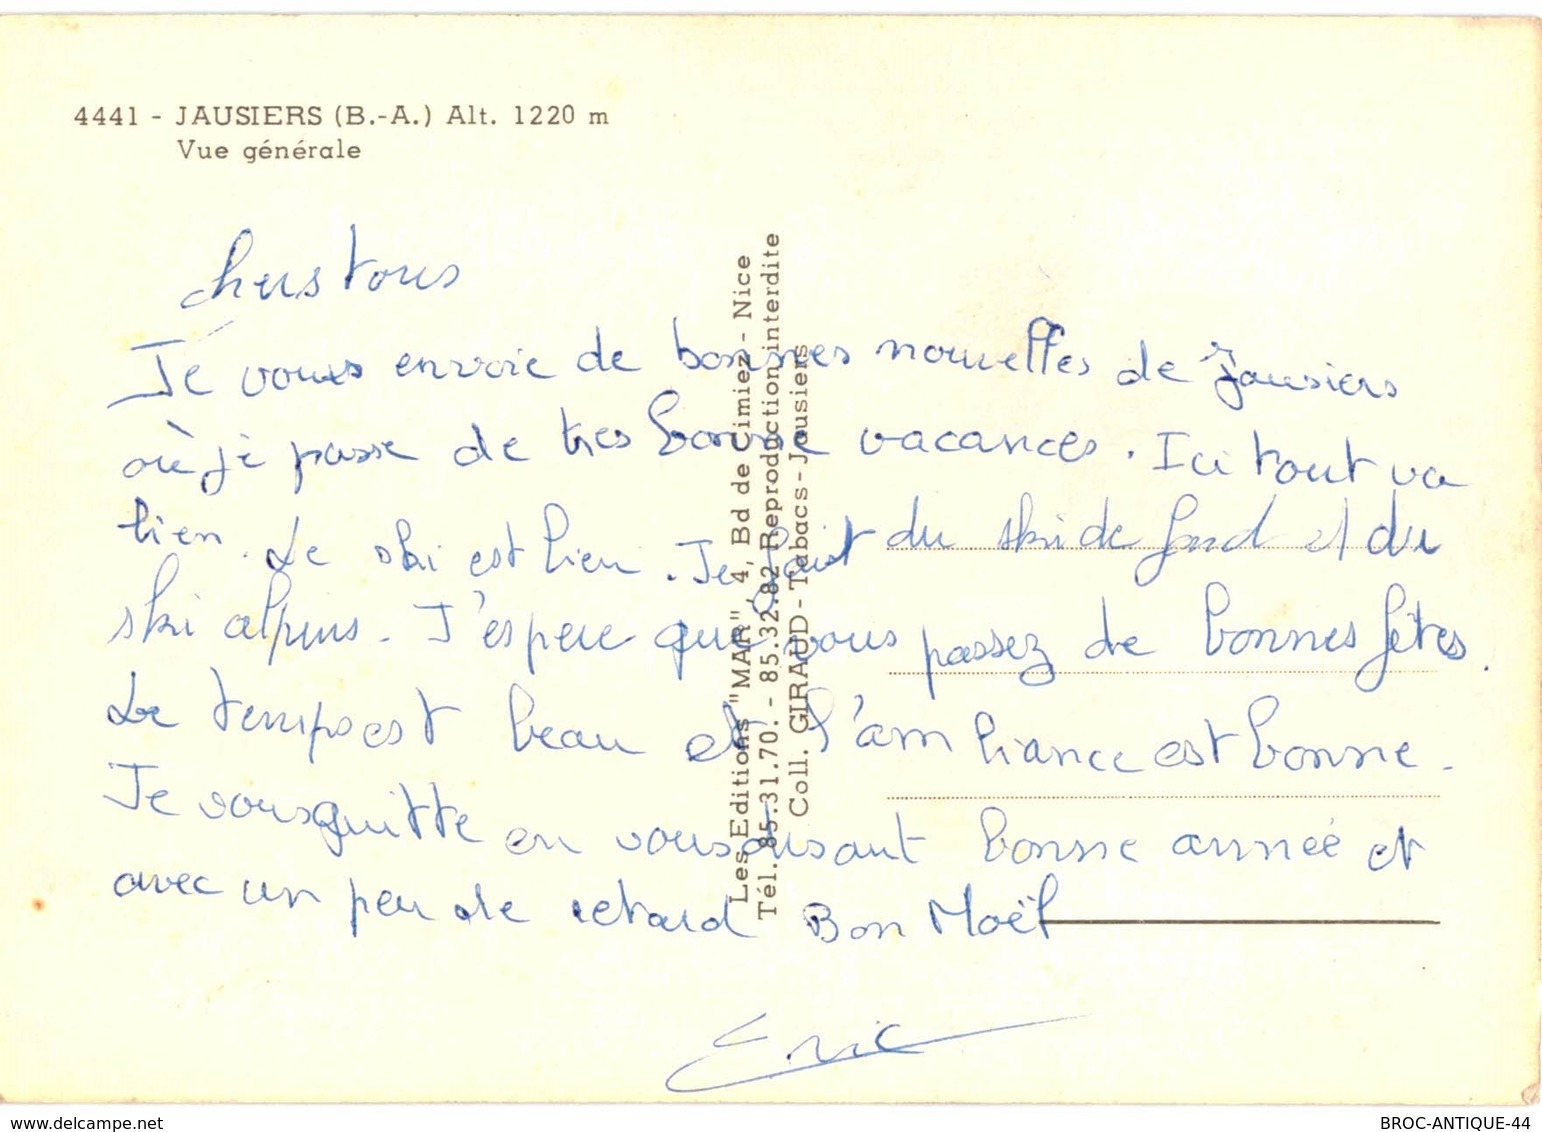 4441 - JAUSIERS (B.-A.) Alt. 1220 m
Vue générale
chers tous
Je vous envoie de bonnes nouvelles de Jausiers
où je passe de tres bonne vacances. Ici tout va
bien. Le ski est bien. Je fait du ski de fond et du
ski alpins. J'espere que vous passez de bonnes fêtes.
Le temps est beau et l'ambiance est bonne.
Je vous quitte en vous disant bonne année et
avec un peu de retard Bon Noël
Eric
Les Editions "MAR", 4, Bd de Cimiez - Nice
Tél. 85.31.70. - 85.32.82 Reproduction interdite
Coll. GIRAUD - Tabacs - Jausiers
www.delcampe.net
BROC-ANTIQUE-44